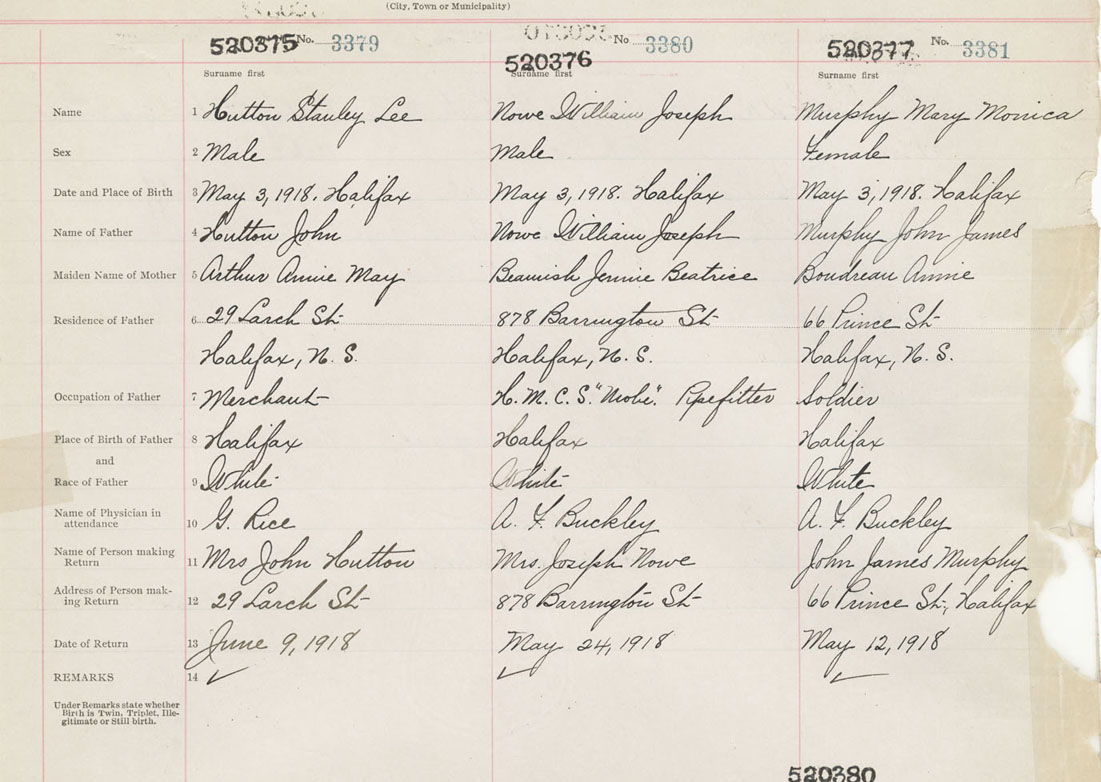 (City, Town or Municipality)
520375 No. 3379 No 3380 520377 No. 3381
520376
Surname first Surname first Surname first
Name 1 Hutton Stanley Lee Nowe William Joseph Murphy Mary Monica
Sex 2 Male Male Female
Date and Place of Birth 3 May 3, 1918. Halifax May 3, 1918. Halifax May 3, 1918. Halifax
Name of Father 4 Hutton John Nowe William Joseph Murphy John James
Maiden Name of Mother 5 Arthur Annie May Beamish Jennie Beatrice Boudreau Annie
Residence of Father 6 29 Larch St 878 Barrington St 66 Prince St
Halifax, N. S. Halifax, N. S. Halifax, N. S.
Occupation of Father 7 Merchant H. M. C. S. "Niobe". Pipefitter Soldier
Place of Birth of Father 8 Halifax Halifax Halifax
and
Race of Father 9 White White White
Name of Physician in attendance 10 G. Rice A. F. Buckley A. F. Buckley
Name of Person making Return 11 Mrs John Hutton Mrs. Joseph Nowe John James Murphy
Address of Person mak-ing Return 12 29 Larch St 878 Barrington St 66 Prince St, Halifax
Date of Return 13 June 9, 1918 May 24, 1918 May 12, 1918
REMARKS 14 ✓ ✓ ✓
Under Remarks state whether
Birth is Twin, Triplet, Ille-
gitimate or Still birth.
520380